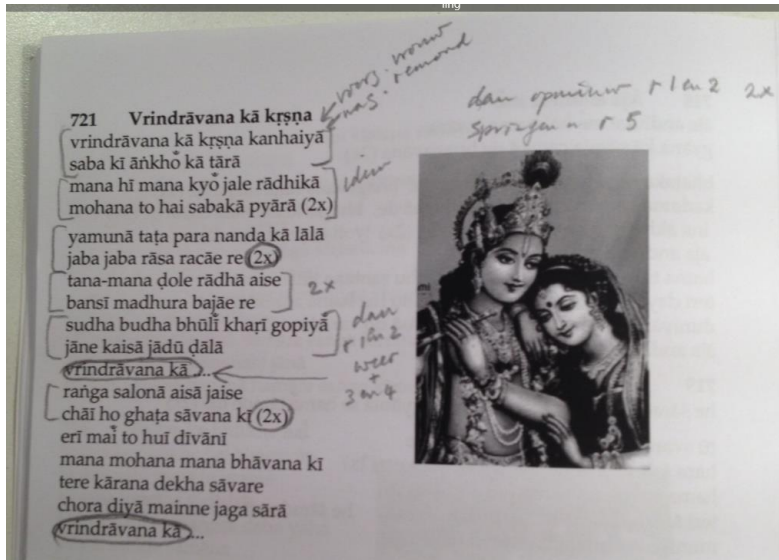 ling
721 Vrindrāvana kā kṛṣṇa
vrindrāvana kā kṛṣṇa kanhaiyā
saba kī āṅkhȯ kā tārā
mana hī mana kyȯ jale rādhikā
mohana to hai sabakā pyārā (2x)
yamunā taṭa para nanda kā lālā
jaba jaba rāsa racāe re (2x)
tana-mana ḍole rādhā aise
bansī madhura bajāe re
sudha budha bhūlī kharī gopiyǡ
jāne kaisā jādū ḍālā
vrindrāvana kā ...
raṅga salonā aisā jaise
chāī ho ghaṭa sāvana kī (2x)
erī mai to huī dīvānī
mana mohana mana bhāvana kī
tere kārana dekha sāvare
chora diyā mainne jaga sārā
vrindrāvana kā ...
voorz. vrouw
naz. remond
idem
2x
dan
r 1 en 2
weer
+
3 en 4
dan opnieuw r 1 en 2 2x
springen r 5